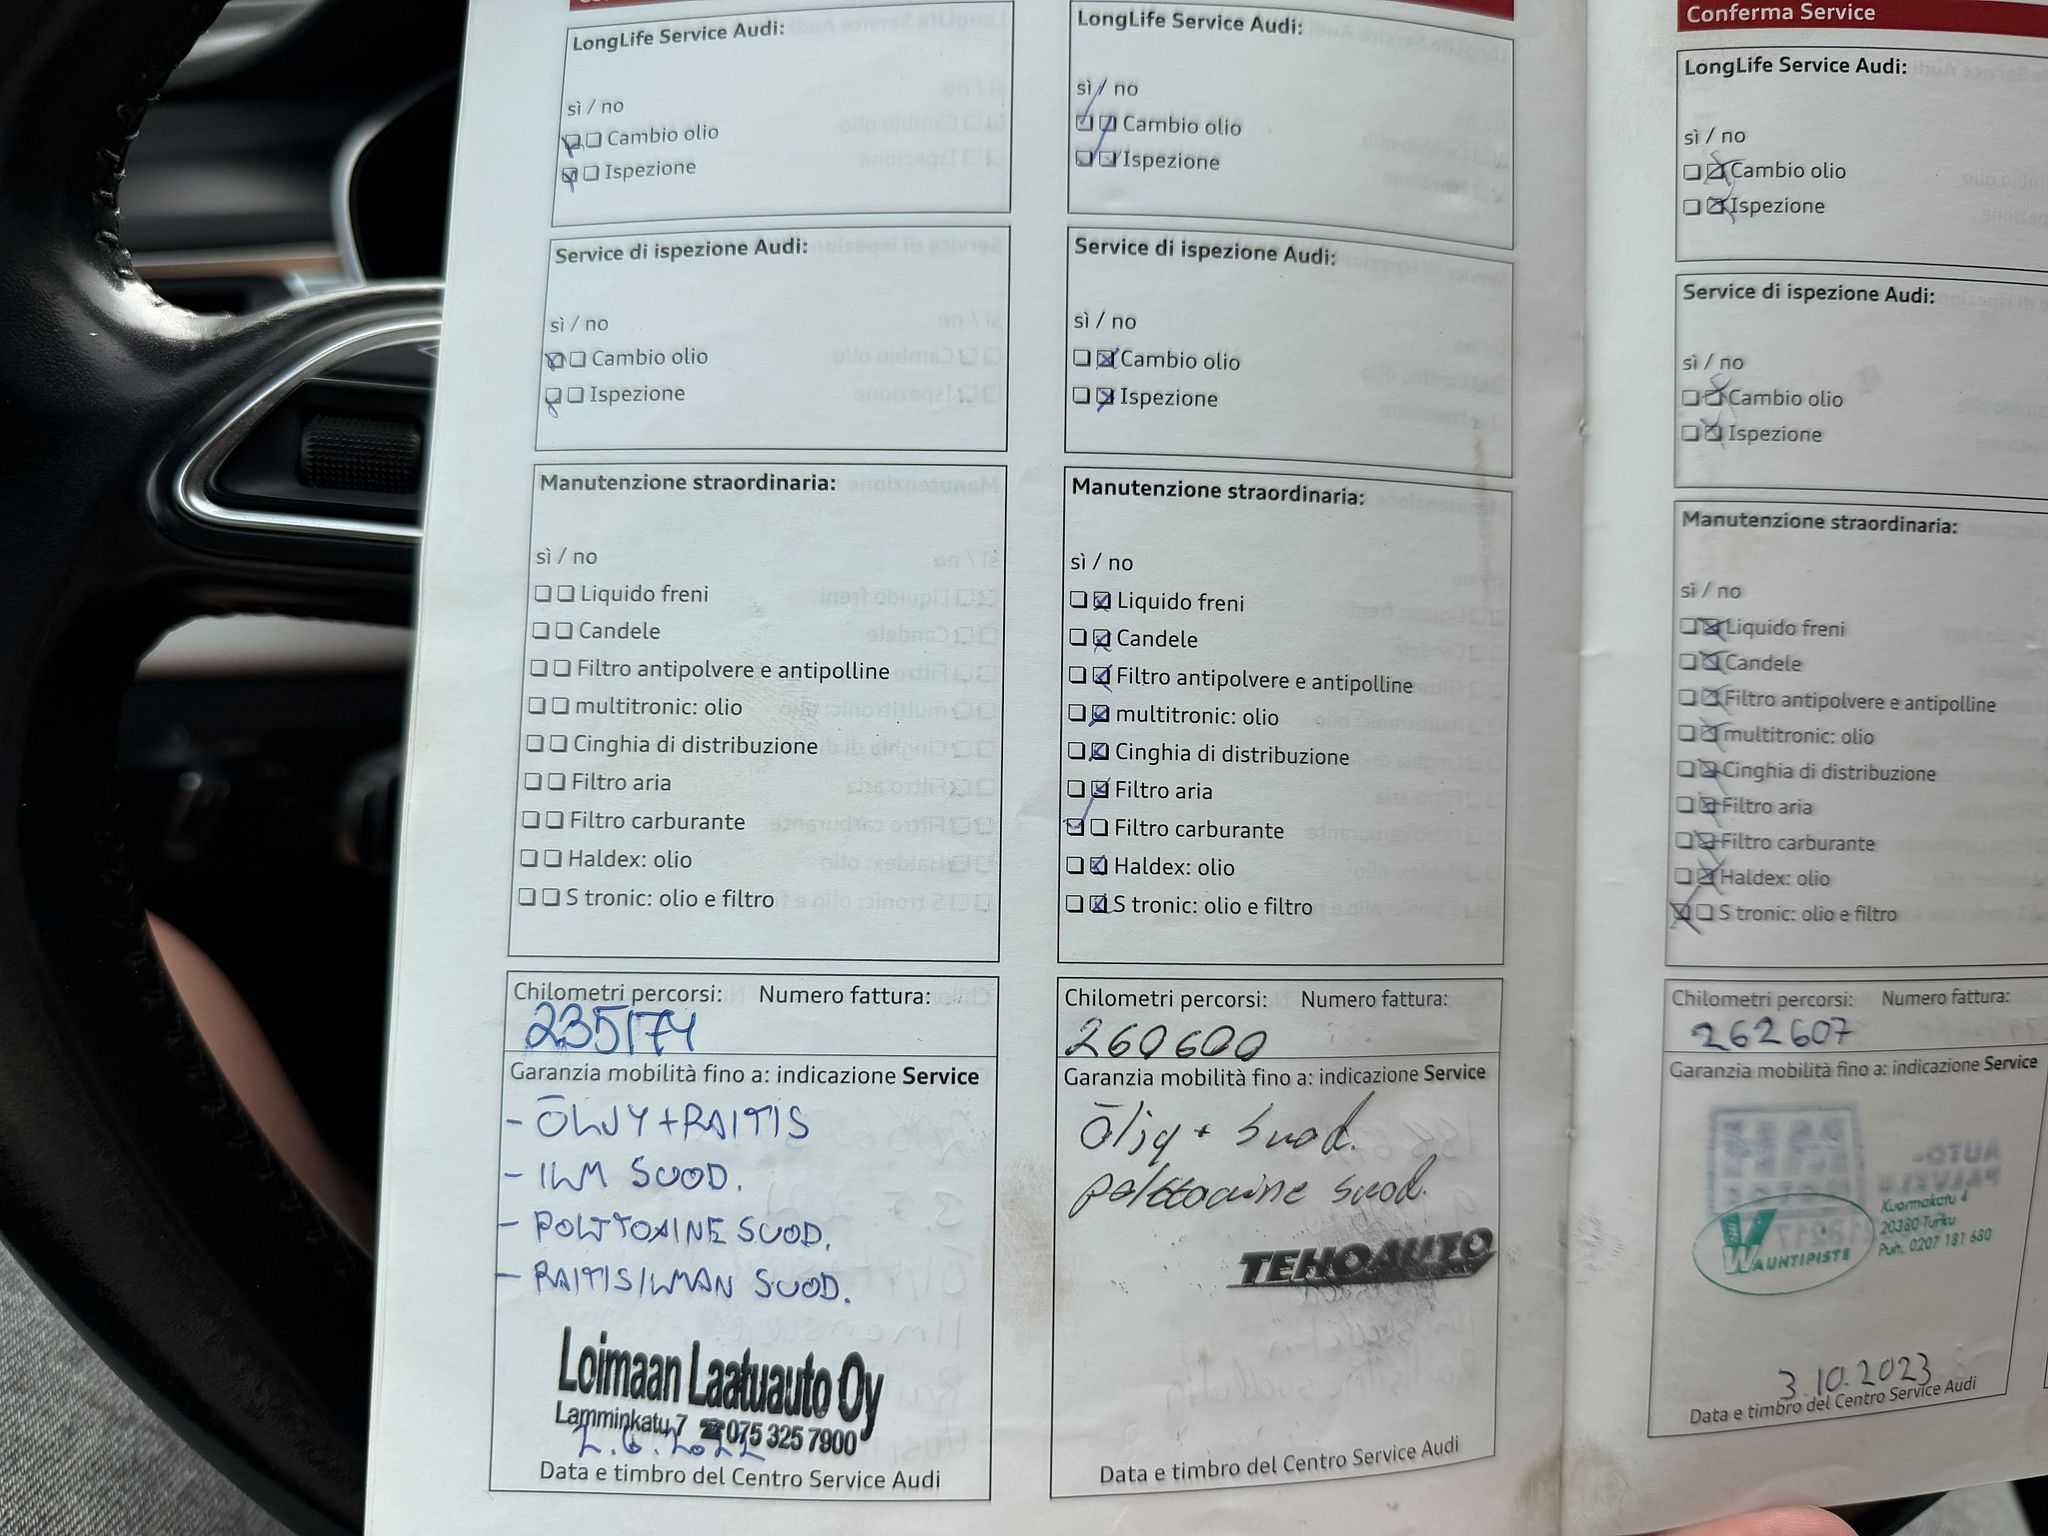 LongLife Service Audi:
sì / no
Cambio olio
Ispezione
Service di ispezione Audi:
sì / no
Cambio olio
Ispezione
Manutenzione straordinaria:
sì / no
Liquido freni
Candele
Filtro antipolvere e antipolline
multitronic: olio
Cinghia di distribuzione
Filtro aria
Filtro carburante
Haldex: olio
S tronic: olio e filtro
Chilometri percorsi: Numero fattura:
235174
Garanzia mobilità fino a: indicazione Service
- ÖLJY+RAITIS
- ILM SUOD.
- POLTTOAINE SUOD.
- RAITISILMAN SUOD.
Loimaan Laatuauto Oy
Lamminkatu 7 ☎075 325 7900
2.6.2022
Data e timbro del Centro Service Audi
LongLife Service Audi:
sì / no
Cambio olio
Ispezione
Service di ispezione Audi:
sì / no
Cambio olio
Ispezione
Manutenzione straordinaria:
sì / no
Liquido freni
Candele
Filtro antipolvere e antipolline
multitronic: olio
Cinghia di distribuzione
Filtro aria
Filtro carburante
Haldex: olio
S tronic: olio e filtro
Chilometri percorsi: Numero fattura:
260600
Garanzia mobilità fino a: indicazione Service
Öljy + Suod.
polttoaine suod.
TEHOAUTO
Data e timbro del Centro Service Audi
Conferma Service
LongLife Service Audi:
sì / no
Cambio olio
Ispezione
Service di ispezione Audi:
sì / no
Cambio olio
Ispezione
Manutenzione straordinaria:
sì / no
Liquido freni
Candele
Filtro antipolvere e antipolline
multitronic: olio
Cinghia di distribuzione
Filtro aria
Filtro carburante
Haldex: olio
S tronic: olio e filtro
Chilometri percorsi: Numero fattura:
262607
Garanzia mobilità fino a: indicazione Service
VAUNTIPISTE
Kuormakatu 4
20380 Turku
Puh. 0207 181 680
3.10.2023
Data e timbro del Centro Service Audi